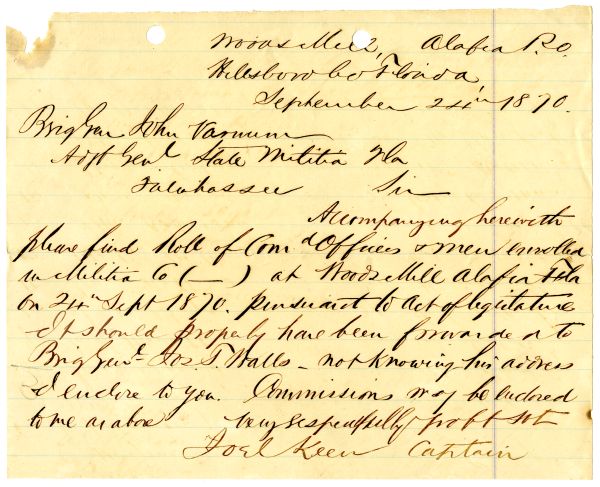 Woods Mill, Alafia P.O.
Hillsboro Co Florida,
September 24th 1870.
Brig Gen John Varnum
Adjt Genl State Militia Fla
Talahassee Sir
Acompanying herewith
please find Roll of Comd Officers & men enrolled
in Militia Co (—) at Woods Mill Alafia Fla
on 24th Sept 1870. pursuant to Act of legislature
It should properly have been forwarded to
Brig Genl Jos. T. Walls - not Knowing his address
I enclose to you. Commissions may be enclosed
to me as above Very Respectfully yr obt svt
Joel Keen Captain